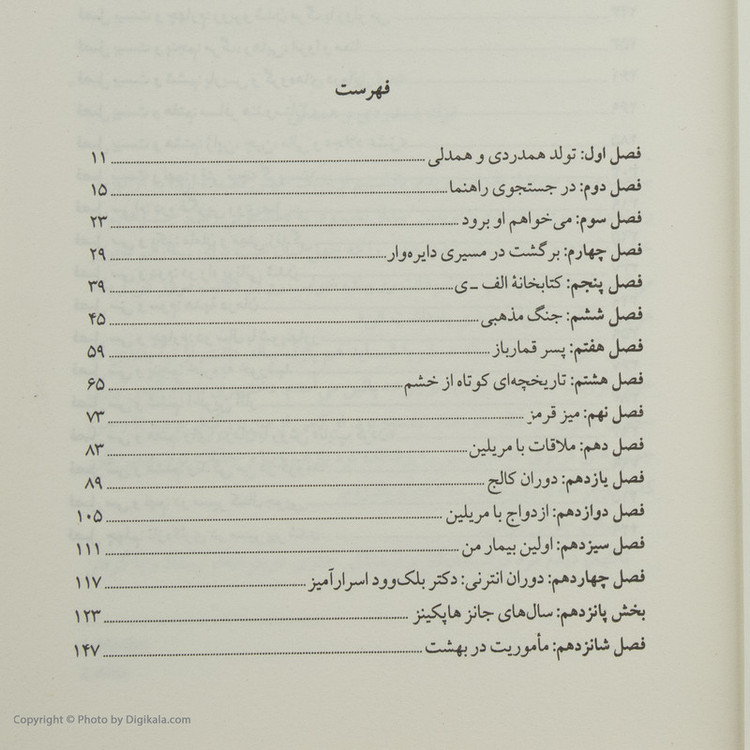 فهرست
فصل اول: تولد همدردی و همدلی ........ ۱۱
فصل دوم: در جستجوی راهنما ........ ۱۵
فصل سوم: می‌خواهم او برود ........ ۲۳
فصل چهارم: برگشت در مسیری دایره‌وار ........ ۲۹
فصل پنجم: کتابخانهٔ الف ـ ی ........ ۳۹
فصل ششم: جنگ مذهبی ........ ۴۵
فصل هفتم: پسر قمارباز ........ ۵۹
فصل هشتم: تاریخچه‌ای کوتاه از خشم ........ ۶۵
فصل نهم: میز قرمز ........ ۷۳
فصل دهم: ملاقات با مریلین ........ ۸۳
فصل یازدهم: دوران کالج ........ ۸۹
فصل دوازدهم: ازدواج با مریلین ........ ۱۰۵
فصل سیزدهم: اولین بیمار من ........ ۱۱۱
فصل چهاردهم: دوران انترنی: دکتر بلک‌وود اسرارآمیز ........ ۱۱۷
بخش پانزدهم: سال‌های جانز هاپکینز ........ ۱۲۳
فصل شانزدهم: مأموریت در بهشت ........ ۱۴۷
Copyright © Photo by Digikala.com